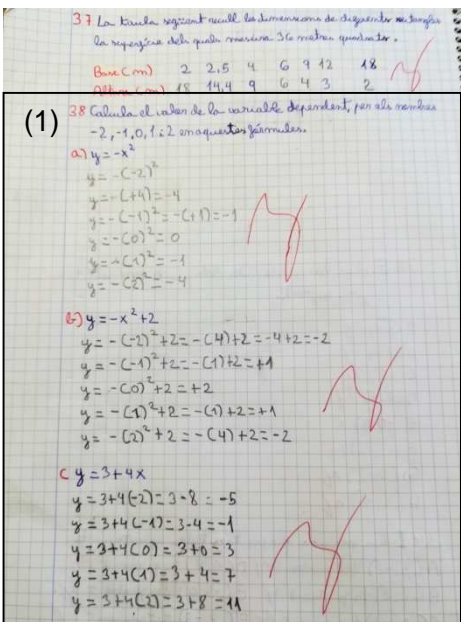 37 La taula següent recull les dimensions de diferents rectangles
la superfície dels quals mesura 36 metres quadrats.
Base (m) 2 2,5 4 6 9 12 18
Altura (m) 18 14,4 9 6 4 3 2
(1)
38 Calcula el valor de la variable dependent, per als nombres
-2, -1, 0, 1 i 2 en aquestes fórmules.
a) y = -x²
y = -(-2)²
y = -(+4) = -4
y = -(-1)² = -(+1) = -1
y = -(0)² = 0
y = -(1)² = -1
y = -(2)² = -4
b) y = -x² + 2
y = -(-2)² + 2 = -(4) + 2 = -4 + 2 = -2
y = -(-1)² + 2 = -(1) + 2 = +1
y = -(0)² + 2 = +2
y = -(1)² + 2 = -(1) + 2 = +1
y = -(2)² + 2 = -(4) + 2 = -2
C y = 3 + 4x
y = 3 + 4(-2) = 3 - 8 = -5
y = 3 + 4(-1) = 3 - 4 = -1
y = 3 + 4(0) = 3 + 0 = 3
y = 3 + 4(1) = 3 + 4 = 7
y = 3 + 4(2) = 3 + 8 = 11